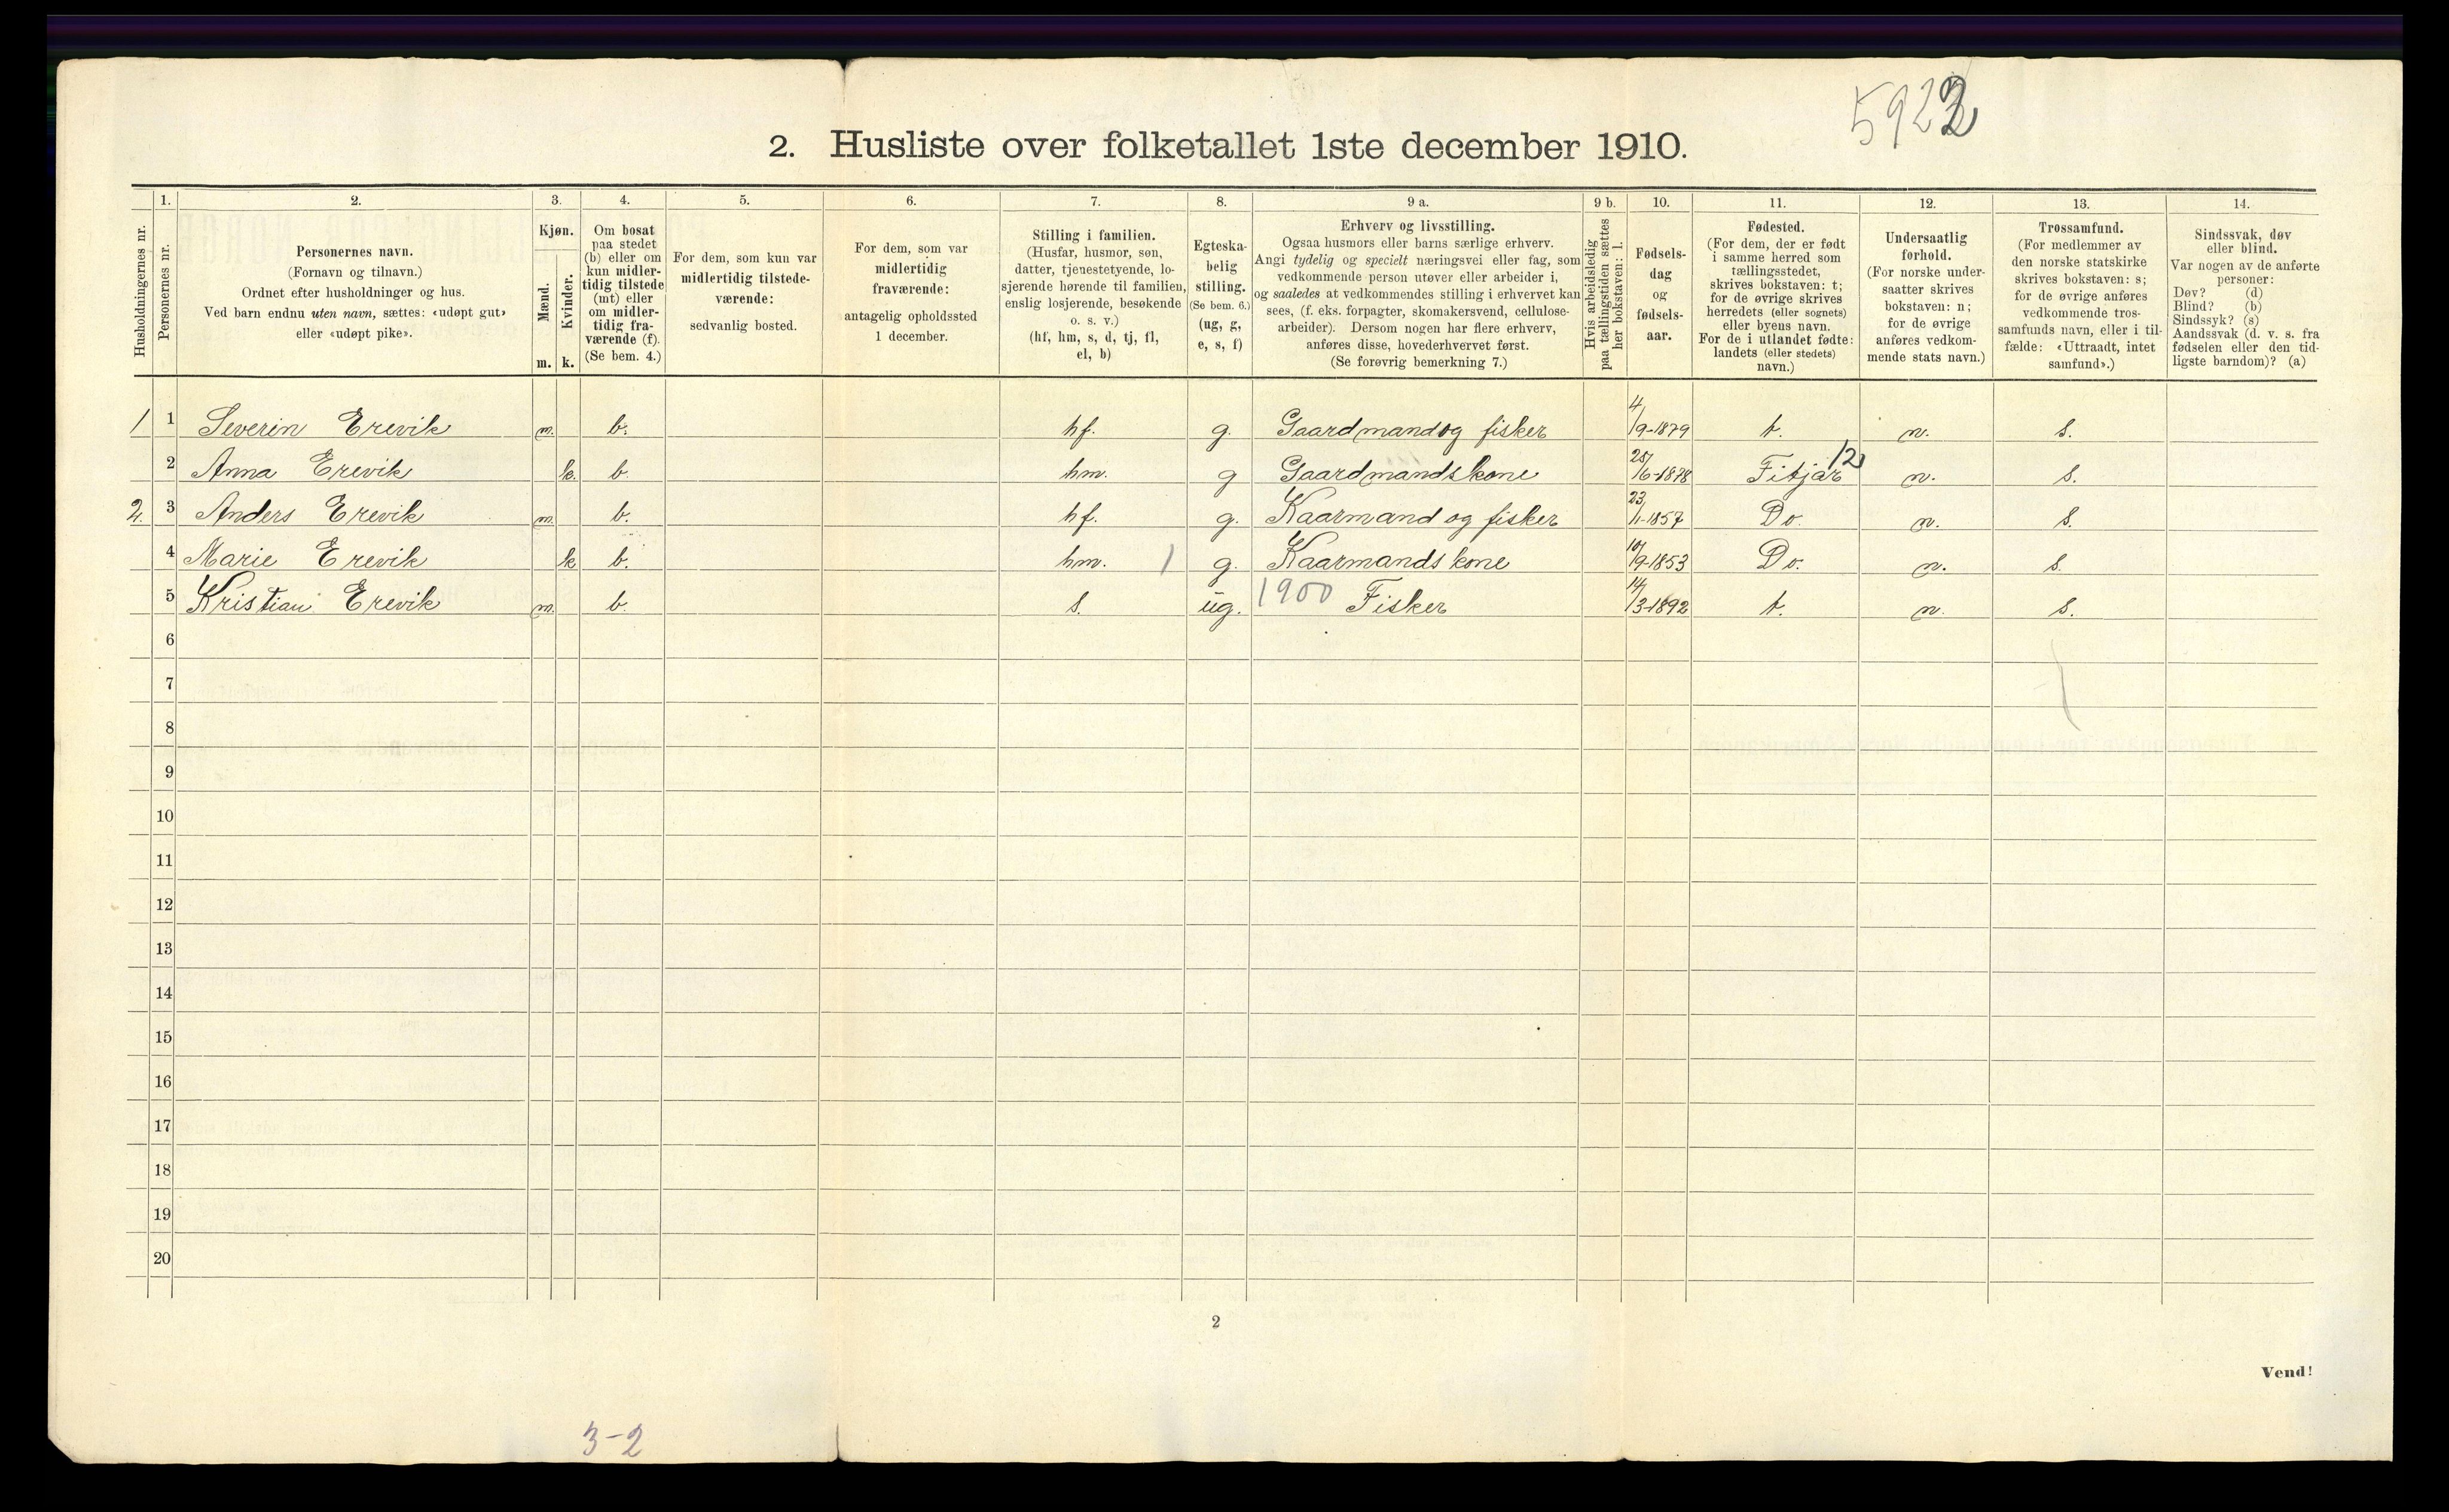 5922
2. Husliste over folketallet 1ste december 1910.
Husholdningernes nr.
1.
Personernes nr.
2.
Personernes navn.
(Fornavn og tilnavn.)
Ordnet efter husholdninger og hus.
Ved barn endnu uten navn, sættes: «udøpt gut»
eller «udøpt pike».
3.
Kjøn.
Mænd.
m.
Kvinder.
k.
4.
Om bosat
paa stedet
(b) eller om
kun midler-
tidig tilstede
(mt) eller
om midler-
tidig fra-
værende (f).
(Se bem. 4.)
5.
For dem, som kun var
midlertidig tilstede-
værende:
sedvanlig bosted.
6.
For dem, som var
midlertidig
fraværende:
antagelig opholdssted
1 december.
7.
Stilling i familien.
(Husfar, husmor, søn,
datter, tjenestetyende, lo-
sjerende hørende til familien,
enslig losjerende, besøkende
o. s. v.)
(hf, hm, s, d, tj, fl,
el, b)
8.
Egteska-
belig
stilling.
(Se bem. 6.)
(ug, g,
e, s, f)
9 a.
Erhverv og livsstilling.
Ogsaa husmors eller barns særlige erhverv.
Angi tydelig og specielt næringsvei eller fag, som
vedkommende person utøver eller arbeider i,
og saaledes at vedkommendes stilling i erhvervet kan
sees, (f. eks. forpagter, skomakersvend, cellulose-
arbeider). Dersom nogen har flere erhverv,
anføres disse, hovederhvervet først.
(Se forøvrig bemerkning 7.)
9 b.
Hvis arbeidsledig
paa tællingstiden sættes
her bokstaven: l.
10.
Fødsels-
dag
og
fødsels-
aar.
11.
Fødested.
(For dem, der er født
i samme herred som
tællingsstedet,
skrives bokstaven: t;
for de øvrige skrives
herredets (eller sognets)
eller byens navn.
For de i utlandet fødte:
landets (eller stedets)
navn.)
12.
Undersaatlig
forhold.
(For norske under-
saatter skrives
bokstaven: n;
for de øvrige
anføres vedkom-
mende stats navn.)
13.
Trossamfund.
(For medlemmer av
den norske statskirke
skrives bokstaven: s;
for de øvrige anføres
vedkommende tros-
samfunds navn, eller i til-
fælde: «Uttraadt, intet
samfund».)
14.
Sindssvak, døv
eller blind.
Var nogen av de anførte
personer:
Døv? (d)
Blind? (b)
Sindssyk? (s)
Aandssvak (d. v. s. fra
fødselen eller den tid-
ligste barndom)? (a)
1 1 Severin Erevik m. b. hf. g. Gaardmand og fisker 4/9-1879 t. n. s.
2 Anna Erevik k. b. hm. g Gaardmandskone 25/6-1878 Fitjar 12 n. s.
2. 3 Anders Erevik m. b. hf. g. Kaarmand og fisker 23/1-1857 Do. n. s.
4 Marie Erevik k b. hm. 1 g. Kaarmandskone 10/9-1853 Do. n. s.
5 Kristian Erevik m. b. s. ug. 1900 Fisker 14/3-1892 t. n. s.
6
7
8
9
10
11
12
13
14
15
16
17
18
19
20
2
Vend!
3-2